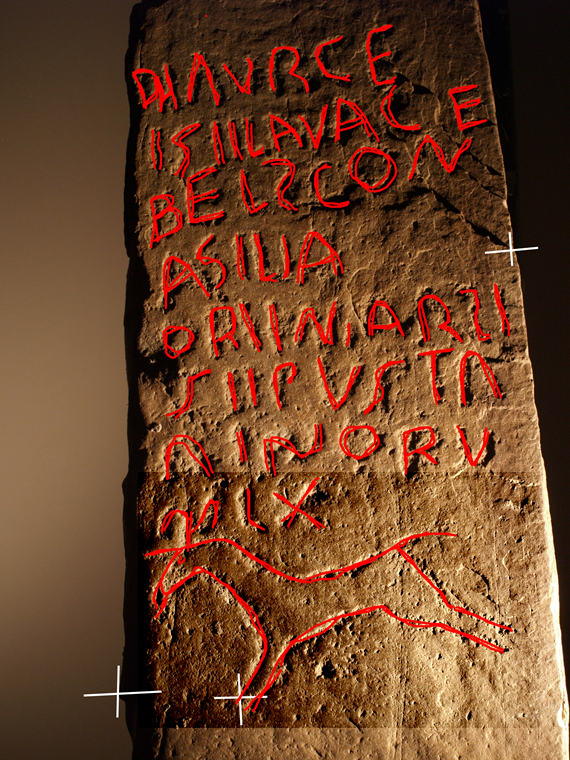 DMAVRCE
ISIILAVACE
BELSCON
ASILIA
ORIINIARSI
SIIPVSTA
AINORV
M LX